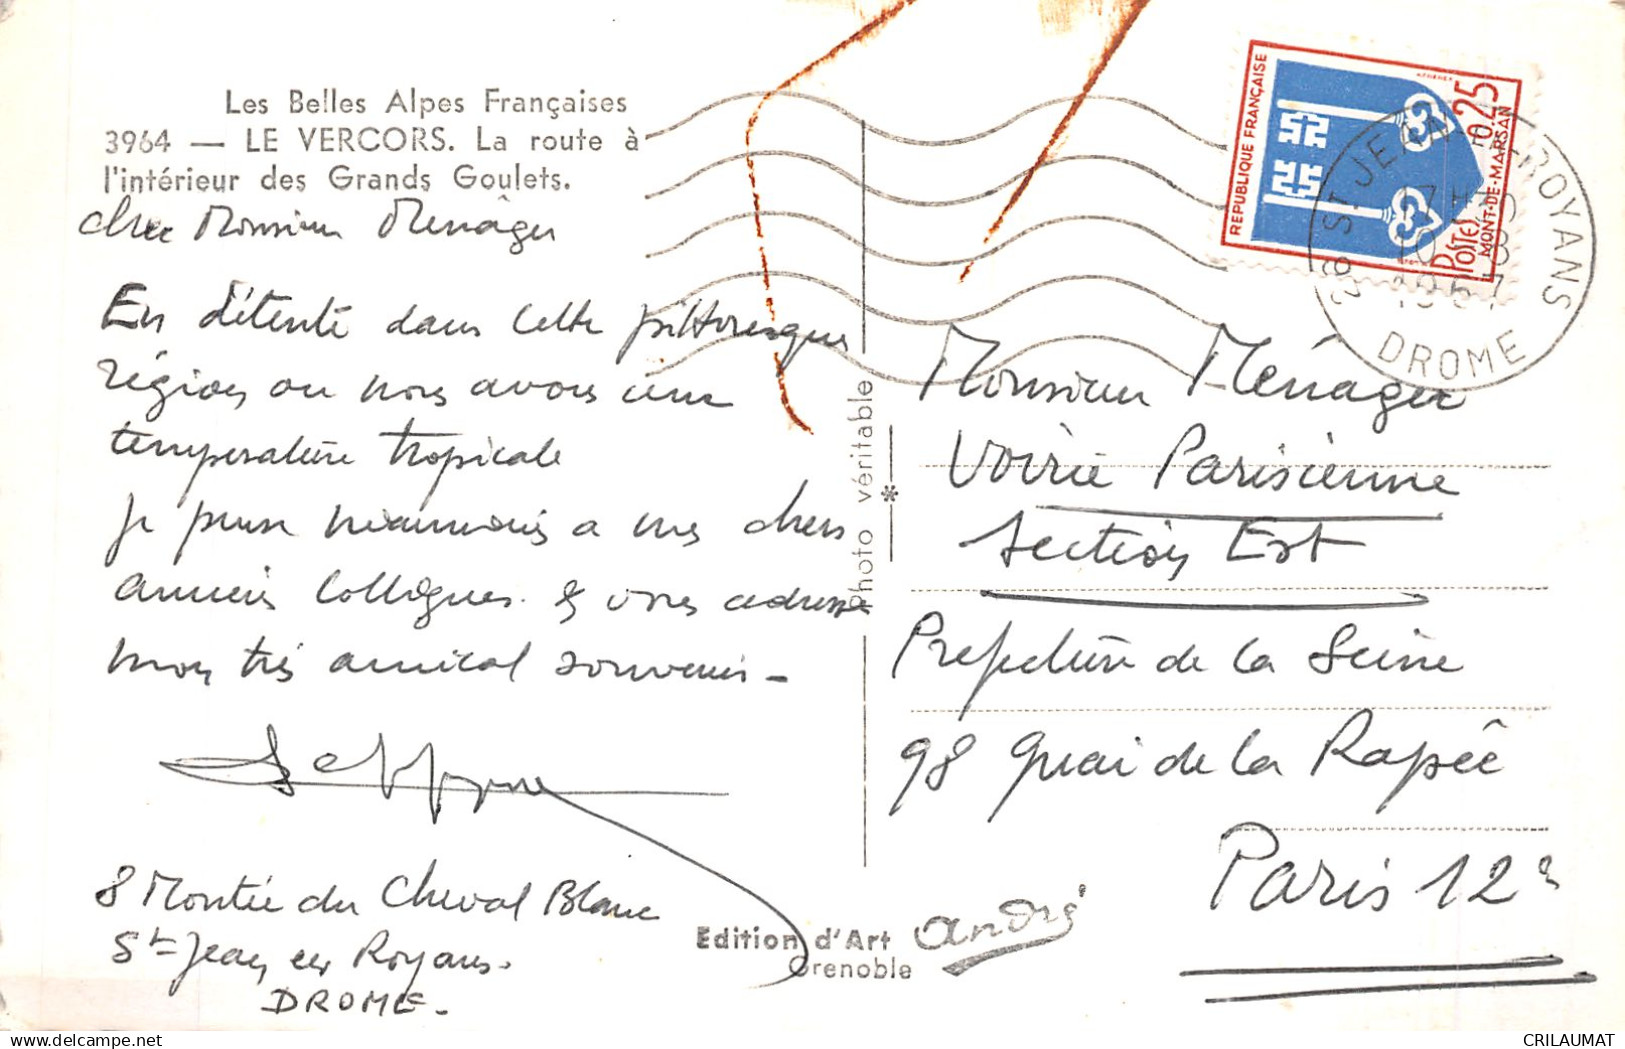 Les Belles Alpes Françaises
3964 — LE VERCORS. La route à
l'intérieur des Grands Goulets.
Cher Monsieur Menâger
En détente dans cette pittoresque
région ou nous avons une
température tropicale
Je pense néanmoins a mes chers
anciens Collègues. & vous adresse
mon très amical souvenir -
8 Montée du Cheval Blanc
St-Jean en Royans.
DROME.
Photo véritable
*
Edition d'Art André
Grenoble
REPUBLIQUE FRANÇAISE
0,25
POSTES
MONT-DE-MARSAN
26 ST JEAN-EN-ROYANS
DROME
Monsieur Ménager
Voirie Parisienne
Section Est
Prefecture de la Seine
98 Quai de la Rapée
Paris 12e
CRILAUMAT